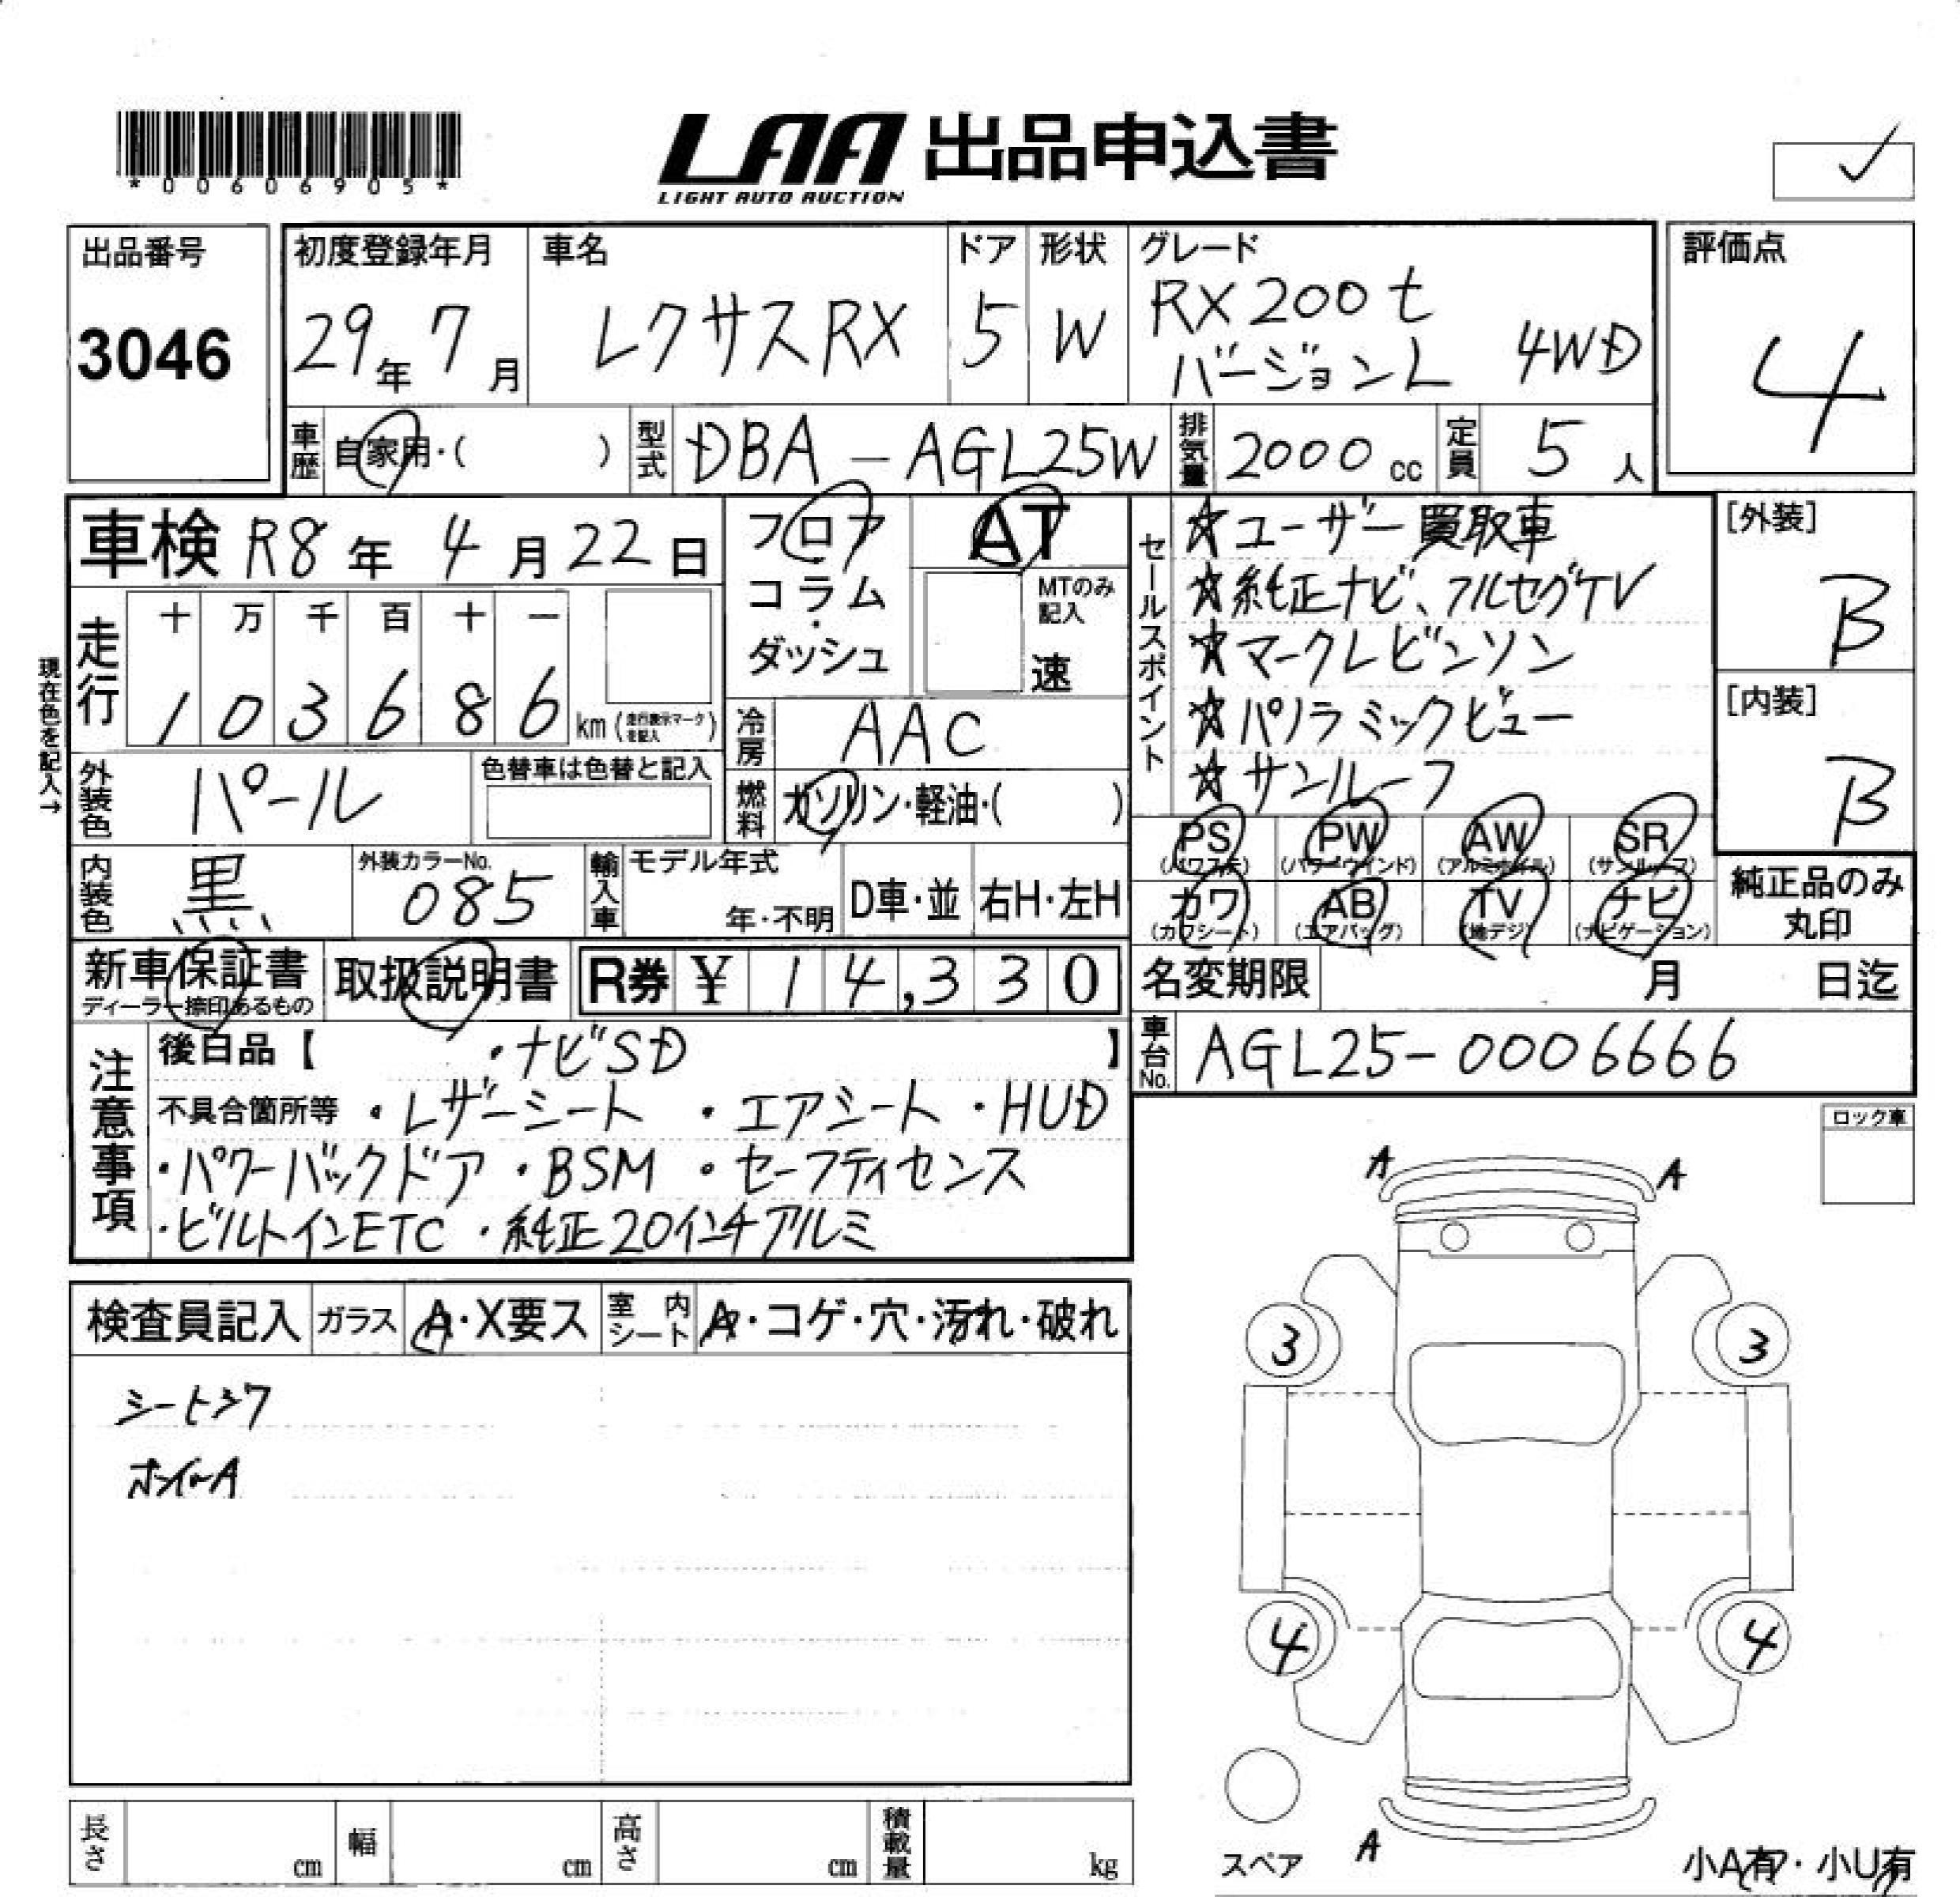 *00606905*
LAA 出品申込書
LIGHT AUTO AUCTION
出品番号
3046
初度登録年月
29年 7月
車名
レクサスRX
ドア
5
形状
W
グレード
RX200t
バージョンL 4WD
評価点
4
車歴 自家用・( )
型式 DBA-AGL25W
排気量 2000 cc
定員 5 人
車検 R8年 4月22日
フロア・コラム・ダッシュ
AT
MTのみ記入
速
現在色を記入→
走行
十 万 千 百 十 一
1 0 3 6 8 6 km (走行表示マークを記入)
冷房 AAC
外装色 パール
色替車は色替と記入
燃料 ガソリン・軽油・( )
内装色 黒
外装カラーNo.
085
輸入車 モデル年式
年・不明
D車・並
右H・左H
セールスポイント
☆ユーザー買取車
☆純正ナビ、フルセグTV
☆マークレビンソン
☆パノラミックビュー
☆サンルーフ
[外装]
B
[内装]
B
PS (パワステ) PW (パワーウインド) AW (アルミホイル) SR (サンルーフ)
カワ (カワシート) AB (エアバッグ) TV (地デジ) ナビ (ナビゲーション)
純正品のみ丸印
新車保証書
ディーラー捺印あるもの
取扱説明書
R券 ¥ 14,330
名変期限 月 日迄
車台No. AGL25-0006666
注意事項
後日品【 ・ナビSD 】
不具合箇所等 ・レザーシート ・エアシート ・HUD
・パワーバックドア ・BSM ・セーフティセンス
・ビルトインETC ・純正20インチアルミ
ロック車
検査員記入 ガラス A・X要ス 室内シート A・コゲ・穴・汚れ・破れ
シートシワ
ホイルA
A A
3 3
4 4
A
スペア
小A有・小U有
長さ cm 幅 cm 高さ cm 積載量 kg